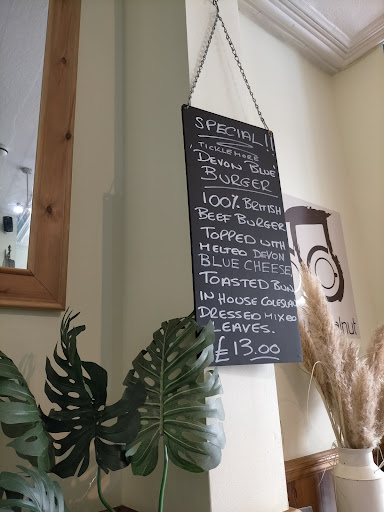 SPECIAL!!
TICKLEMORE
'DEVON BLUE'
BURGER
100% BRITISH
BEEF BURGER
TOPPED WITH
MELTED DEVON
BLUE CHEESE
TOASTED BUN
IN HOUSE COLESLAW
DRESSED MIXED
LEAVES.
£13.00